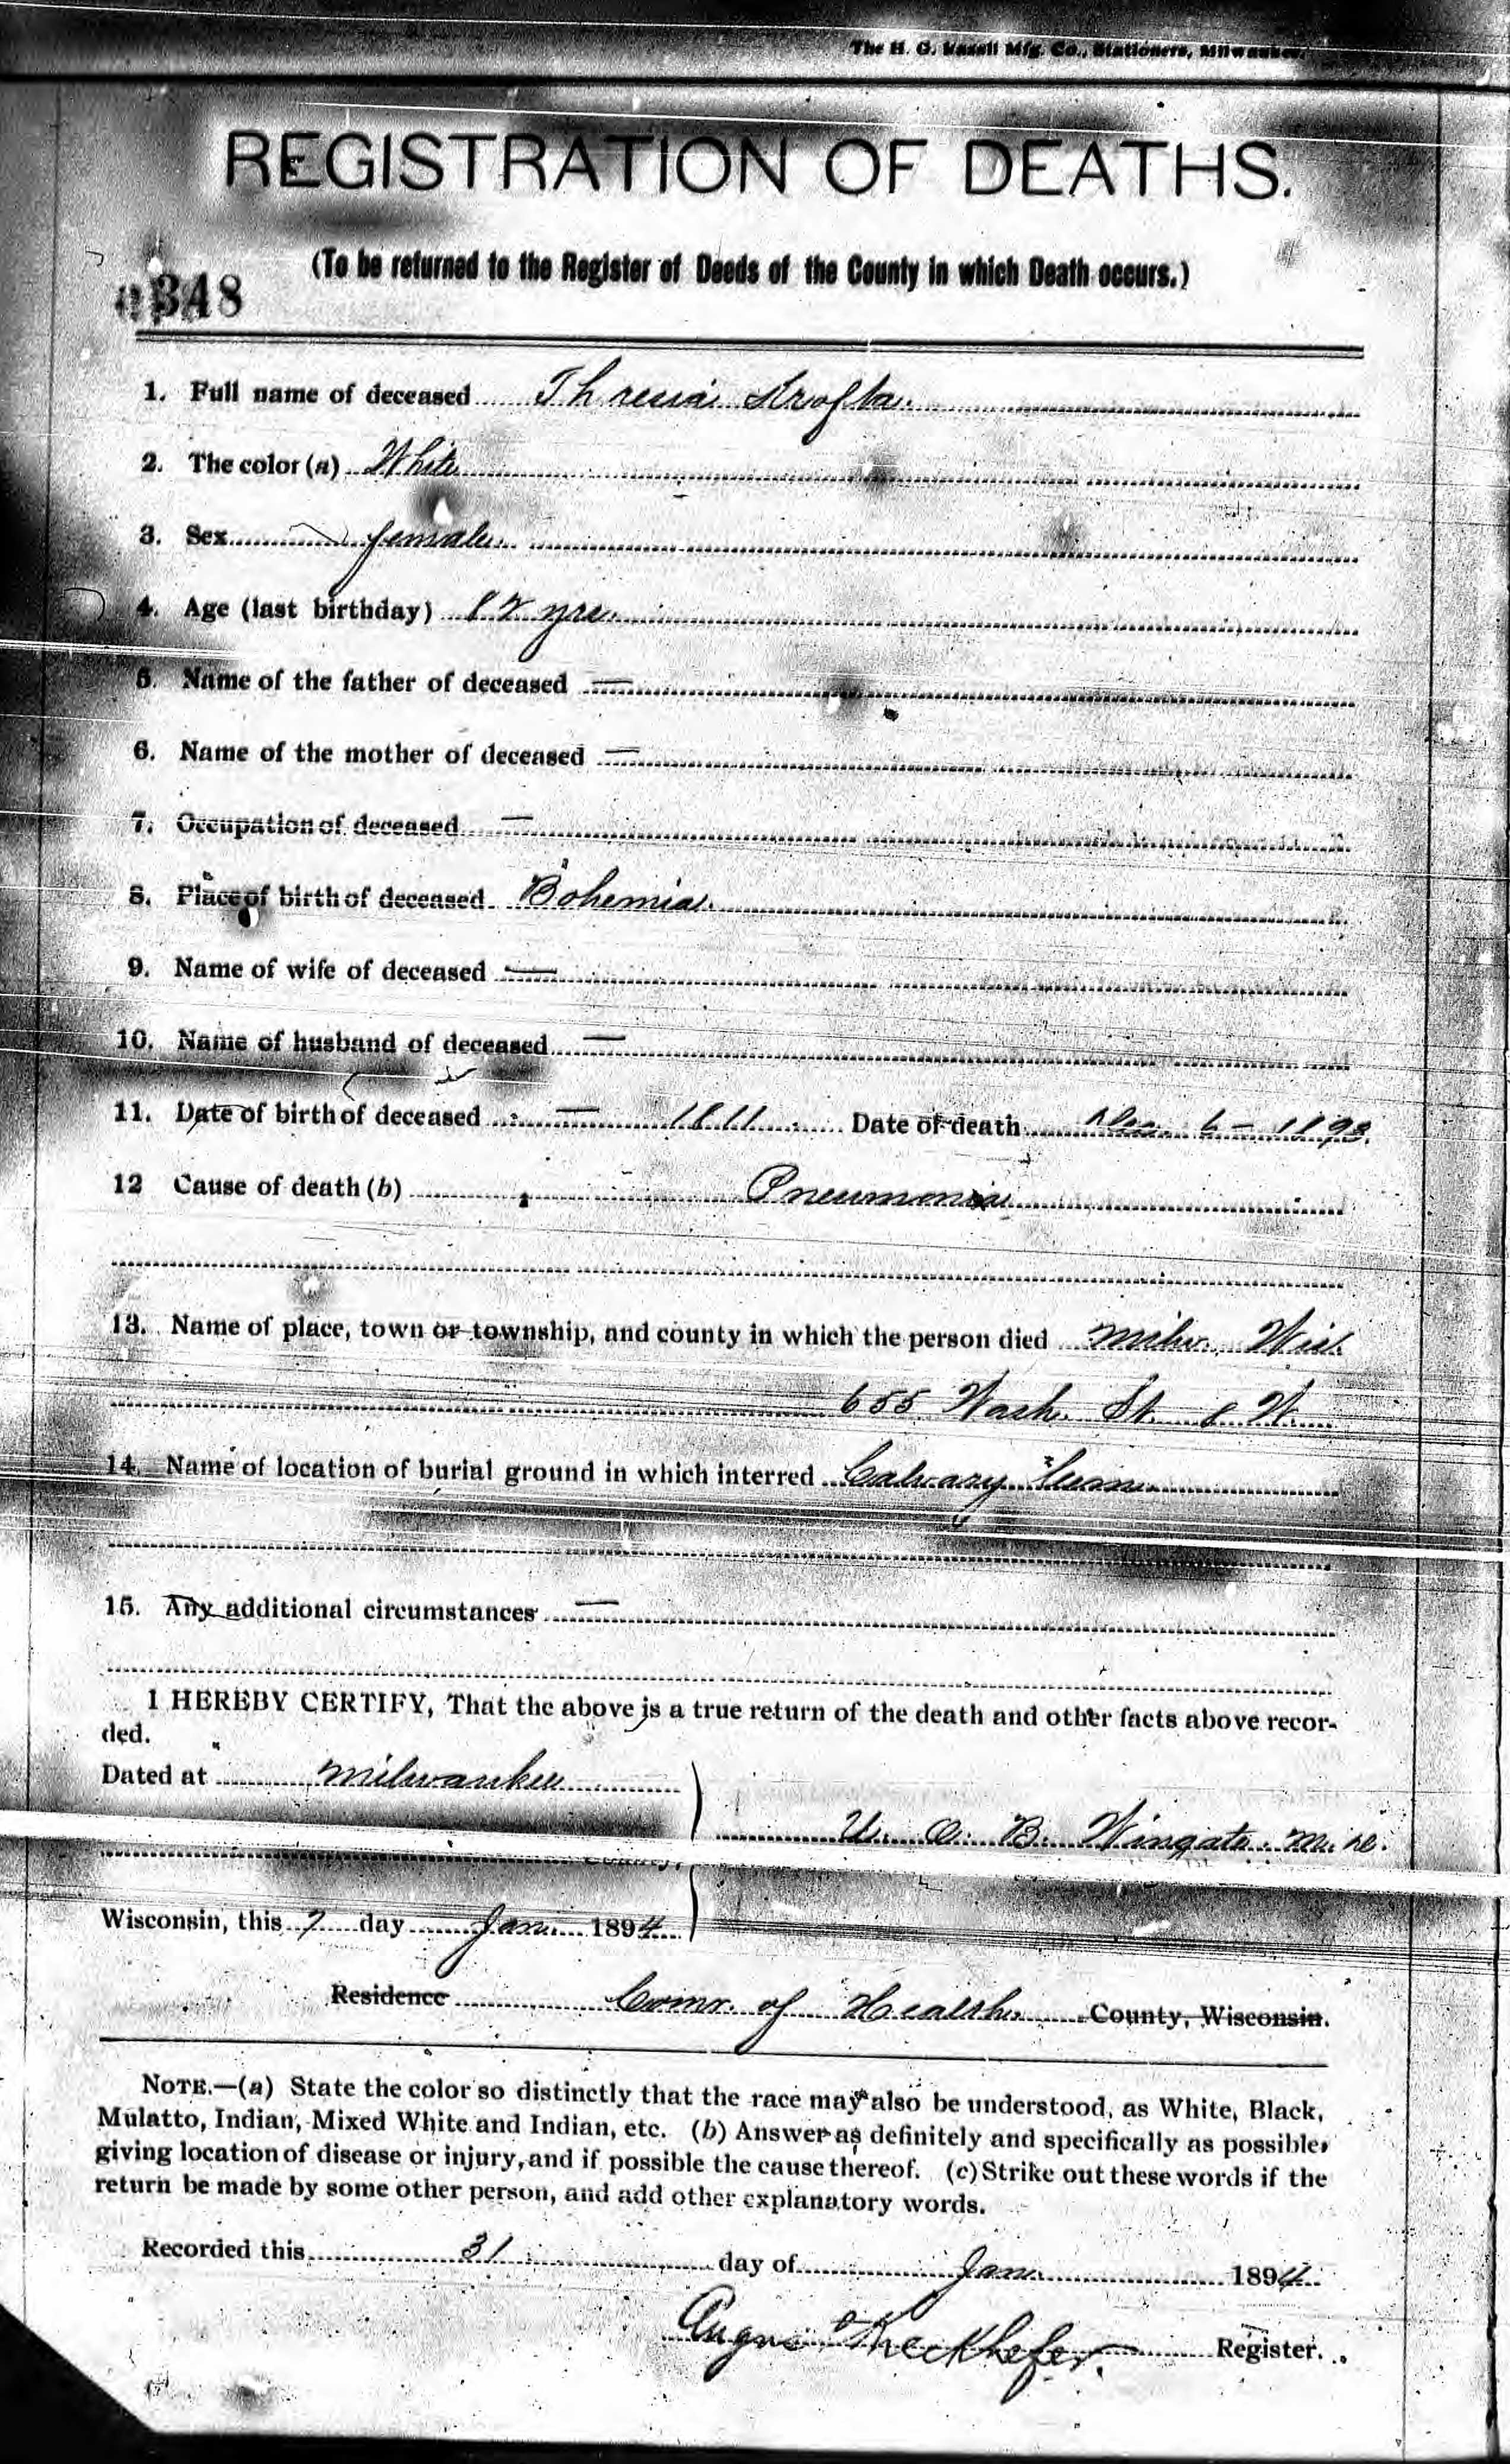 The H. G. Razall Mfg. Co., Stationers, Milwaukee.
REGISTRATION OF DEATHS.
(To be returned to the Register of Deeds of the County in which Death occurs.)
348
1. Full name of deceased Thresia
2. The color (a) White
3. Sex female
4. Age (last birthday) 82 yrs.
5. Name of the father of deceased —
6. Name of the mother of deceased —
7. Occupation of deceased —
8. Place of birth of deceased Bohemia.
9. Name of wife of deceased —
10. Name of husband of deceased —
11. Date of birth of deceased — 1811 Date of death 6 – 1893.
12 Cause of death (b) Pneumonia
13. Name of place, town or township, and county in which the person died Milw. Wis.
655 Wash. St. 8 W.
14. Name of location of burial ground in which interred Calvary
15. Any additional circumstances —
I HEREBY CERTIFY, That the above is a true return of the death and other facts above recor-
ded.
Dated at Milwaukee
U. O. B. Wingate M. D.
County,
Wisconsin, this 7 day Jan. 1894
Residence Comr. of Health County, Wisconsin.
NOTE.—(a) State the color so distinctly that the race may also be understood, as White, Black,
Mulatto, Indian, Mixed White and Indian, etc. (b) Answer as definitely and specifically as possible,
giving location of disease or injury, and if possible the cause thereof. (c) Strike out these words if the
return be made by some other person, and add other explanatory words.
Recorded this 31 day of Jan. 1894
Register.